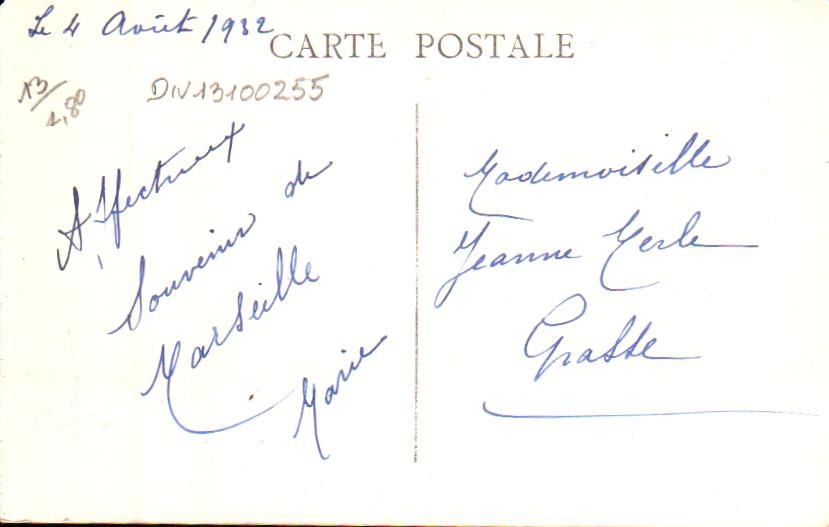 Le 4 Août 1932
CARTE POSTALE
13/
1,80
DIV13100255
Affectueux
Souvenir de
Marseille
Marie
Mademoiselle
Jeanne Merle
Grasse